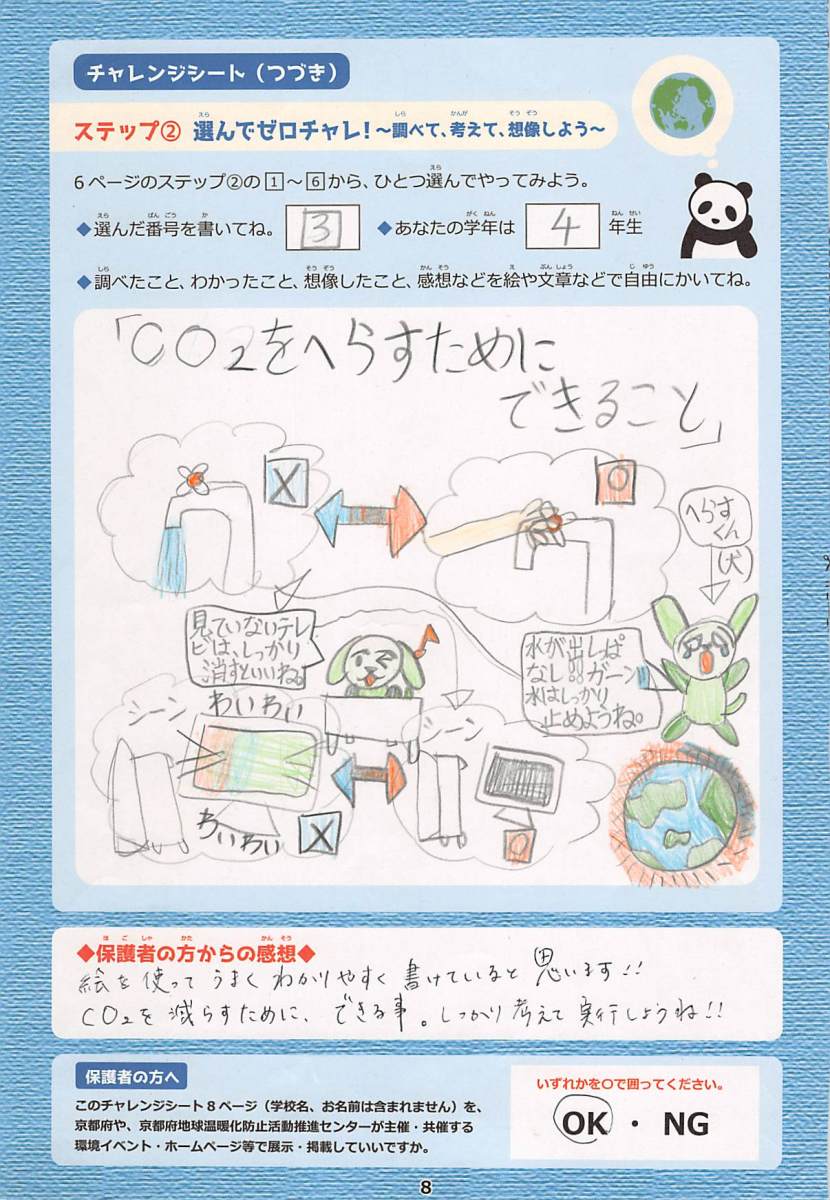 チャレンジシート（つづき）
ステップ② 選んでゼロチャレ！～調べて、考えて、想像しよう～
6ページのステップ②の1～6から、ひとつ選んでやってみよう。
◆選んだ番号を書いてね。 3 ◆あなたの学年は 4 年生
◆調べたこと、わかったこと、想像したこと、感想などを絵や文章などで自由にかいてね。
「CO2をへらすために
できること」
X
O
へらす
くん
(犬)
見ていないテレ
ビは、しっかり
消すといいね。
水が出しぱ
なし!!ガーン
水はしっかり
止めようね。
シーン
わいわい
わいわい
X
シーン
O
◆保護者の方からの感想◆
絵を使ってうまくわかりやすく書けていると思います!!
CO2を減らすために、できる事。しっかり考えて実行しようね!!
保護者の方へ
このチャレンジシート8ページ（学校名、お名前は含まれません）を、
京都府や、京都府地球温暖化防止活動推進センターが主催・共催する
環境イベント・ホームページ等で展示・掲載していいですか。
いずれかを○で囲ってください。
OK・NG
8